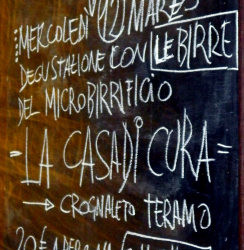 MERCOLEDÌ 12 MARZO
DEGUSTAZIONE CON LE BIRRE
DEL MICROBIRRIFICIO
= LA CASA DI CURA =
→ CROGNALETO TERAMO
20€ A PERSONA